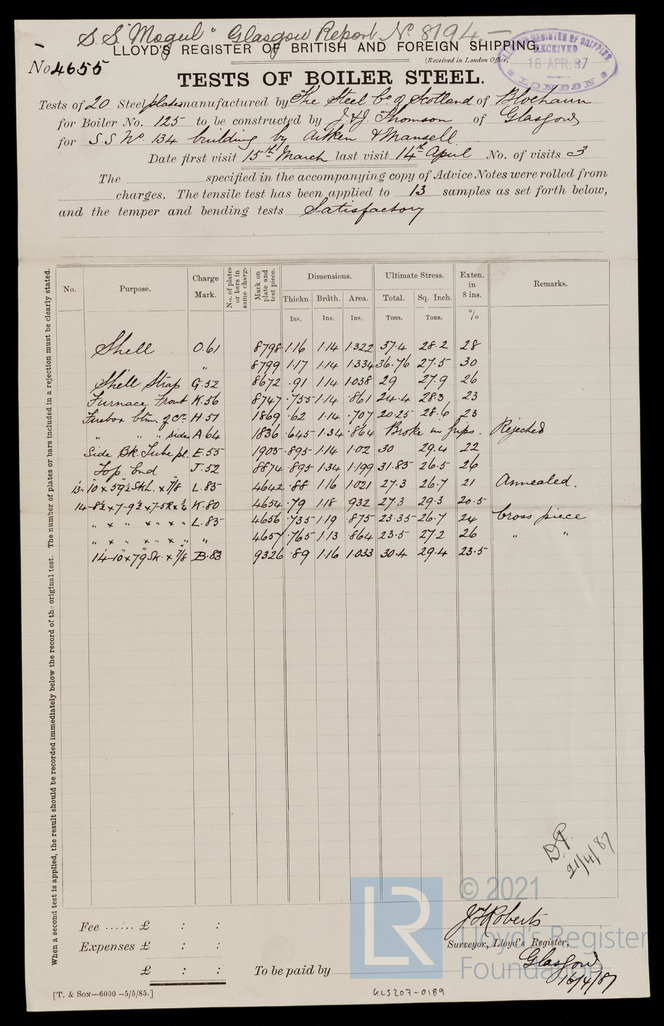 S.S. "Mogul" Glasgow Report No. 8194 —
LLOYD'S REGISTER OF BRITISH AND FOREIGN SHIPPING.
No 4655
(Received in London Office,
LLOYD'S REGISTER OF SHIPPING RECEIVED 18 APR. 87 LONDON
TESTS OF BOILER STEEL.
Tests of 20 Steel plates manufactured by The Steel Co of Scotland of Blochairn
for Boiler No. 125 to be constructed by J & J Thomson of Glasgow
for S.S No 134 building by Aitken & Mansell
Date first visit 15th March last visit 14th April No. of visits 3
The specified in the accompanying copy of Advice Notes were rolled from
charges. The tensile test has been applied to 13 samples as set forth below,
and the temper and bending tests Satisfactory
No. Purpose. Charge Mark. No. of plates or bars in same charge. Mark on plate and test piece. Dimensions. Ultimate Stress. Exten. in 8 ins. Remarks.
Thickn. Brdth. Area. Total. Sq. Inch.
Ins. Ins. Ins. Tons. Tons. %
Shell O 61 8798 1.16 1.14 1.322 37.4 28.2 28
" 8799 1.17 1.14 1.334 36.76 27.5 30
Shell Strap G.52 8672 .91 1.14 1.038 29 27.9 26
Furnace Front K.56 8747 .755 1.14 .861 24.4 28.3 23
Firebox btm. of cr. H.51 1869 .62 1.14 .707 20.25 28.6 23
" " " sides A 64 1836 .645 1.34 .864 Broke in grips. Rejected
Side Bk. Tube pl. E.55 1905 .895 1.14 1.02 30 29.4 22
Top End J.52 8874 .895 1.34 1.199 31.85 26.5 26
L.85 4642 .88 1.16 1.021 27.3 26.7 21 Annealed.
K.80 4654 .79 1.18 .932 27.3 29.3 20.5
" × " × " × " L.85 4656 .735 1.19 .875 23.35 26.7 24 Cross piece
" × " × " × " " 4657 .765 1.13 .864 23.5 27.2 26 " "
B.83 9326 .89 1.16 1.033 30.4 29.4 23.5
When a second test is applied, the result should be recorded immediately below the record of the original test. The number of plates or bars included in a rejection must be clearly stated.
D.P.
21/4/87
Fee ...... £ : :
Expenses £ : :
£ : :
To be paid by
J H Roberts
Surveyor, Lloyd's Register,
Glasgow
16/4/87
[T. & Son—6000 —5/5/85.]
GLS207-0189
LR
© 2021
Lloyd's Register
Foundation